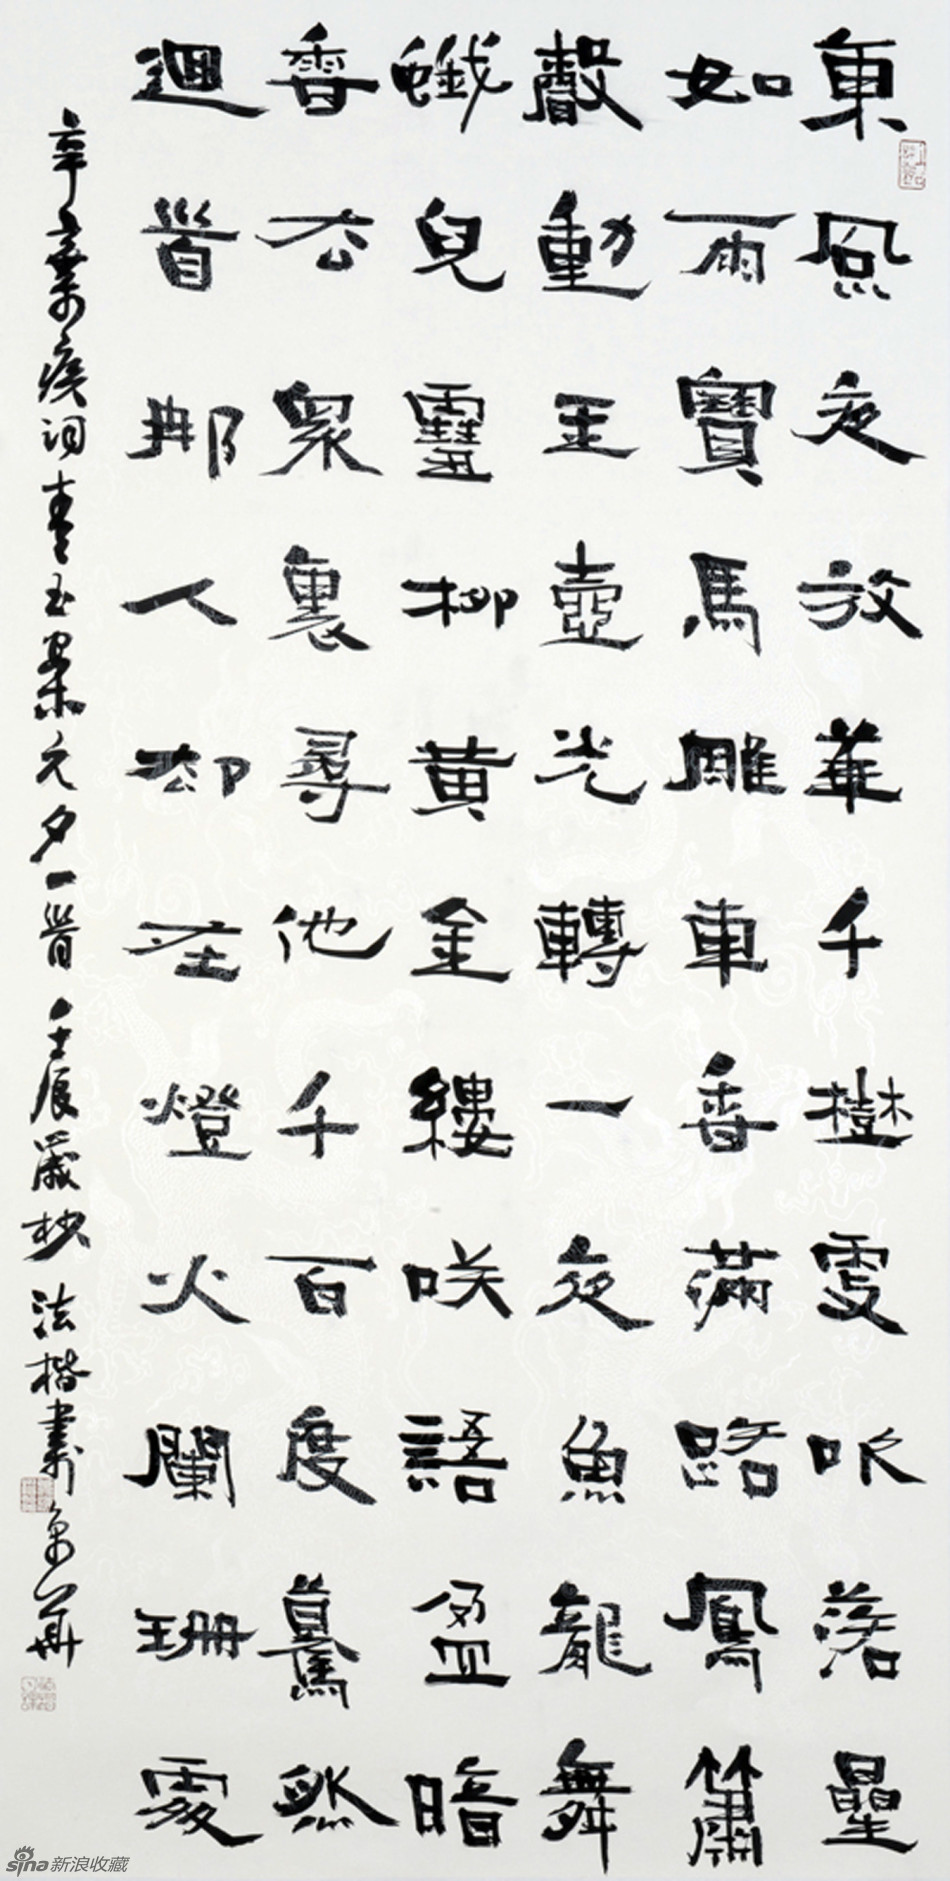 東風夜放華千樹更吹落曐
如雨寶馬雕車香滿路鳳簫
聲動玉壺光轉一夜魚龍舞
蛾兒雪柳黃金縷咲語盈暗
香去眾裏尋他千百度驀然
迴首那人却在燈火闌珊處
辛棄疾詞青玉案元夕一首 壬辰歲杪 法楷書於京華
sina新浪收藏